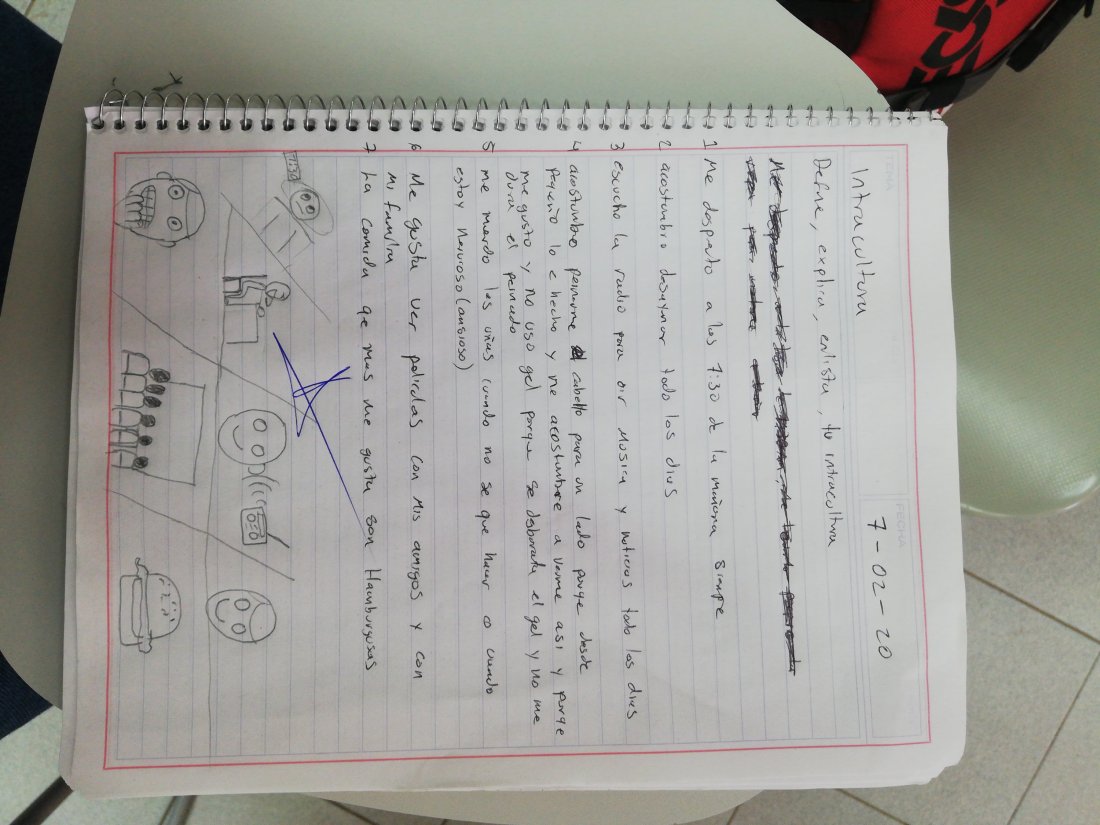 TEMA
FECHA
Intracultura
7-02-20
Define, explica, enlista, tu intracultura
1 Me despierto a las 7:30 de la mañana siempre
2 acostumbro desayunar todo los dias
3 escucho la radio para oir Musica y noticias todo los dias
4 acostumbro peinarme el cabello para un lado porqe desde
pequeño lo e hecho y me acostumbre a verme asi y porqe
me gusto y no uso gel porque se desborada el gel y no me
dura el peinado
5 me muerdo las uñas cuando no se que hacer o cuando
estoy nervioso (ansioso)
6 Me gusta ver peliculas con mis amigos y con
mi familia
7 La comida qe mas me gusta son Hamburgusas
7:30